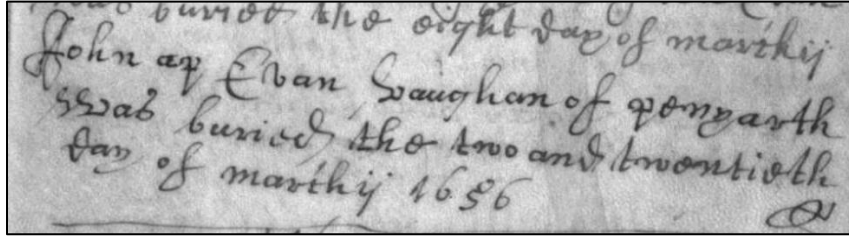 was buried the eight day of marthij
John ap Evan Vaughan of penyarth
Was buried the two and twentieth
day of marthij 1656